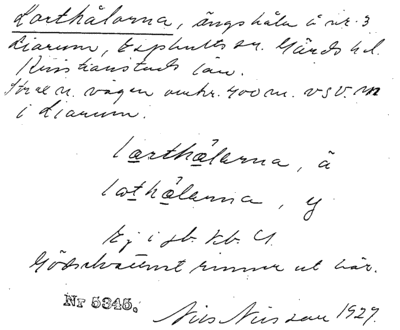 Lorthålorna, ängshåla å nr. 3
Liarum, Esphults sn. Gärds hd.
Kristianstads län.
Strax n. vägen omkr. 400 m. v s v. m
i Liarum.
lorthålarna, ä
lothålarna, y
Ej i jb. kb. U
Gödselvattnet rinner ut här.
Nr 5345.
Nils Nilsson 1929.